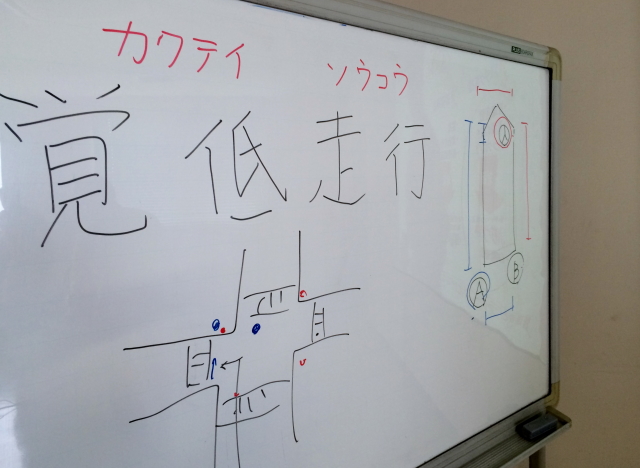 カクテイ ソウコウ
覚低走行
A
B